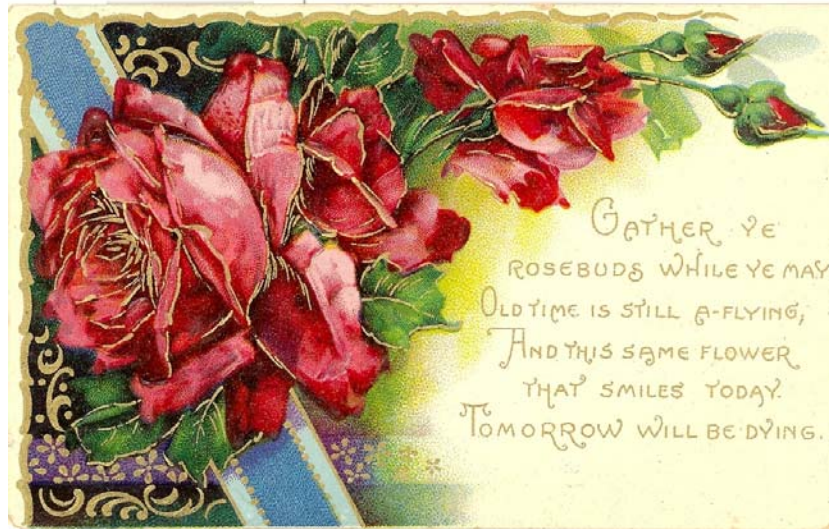 GATHER YE
ROSEBUDS WHILE YE MAY
OLD TIME IS STILL A-FLYING,
AND THIS SAME FLOWER
THAT SMILES TODAY.
TOMORROW WILL BE DYING.